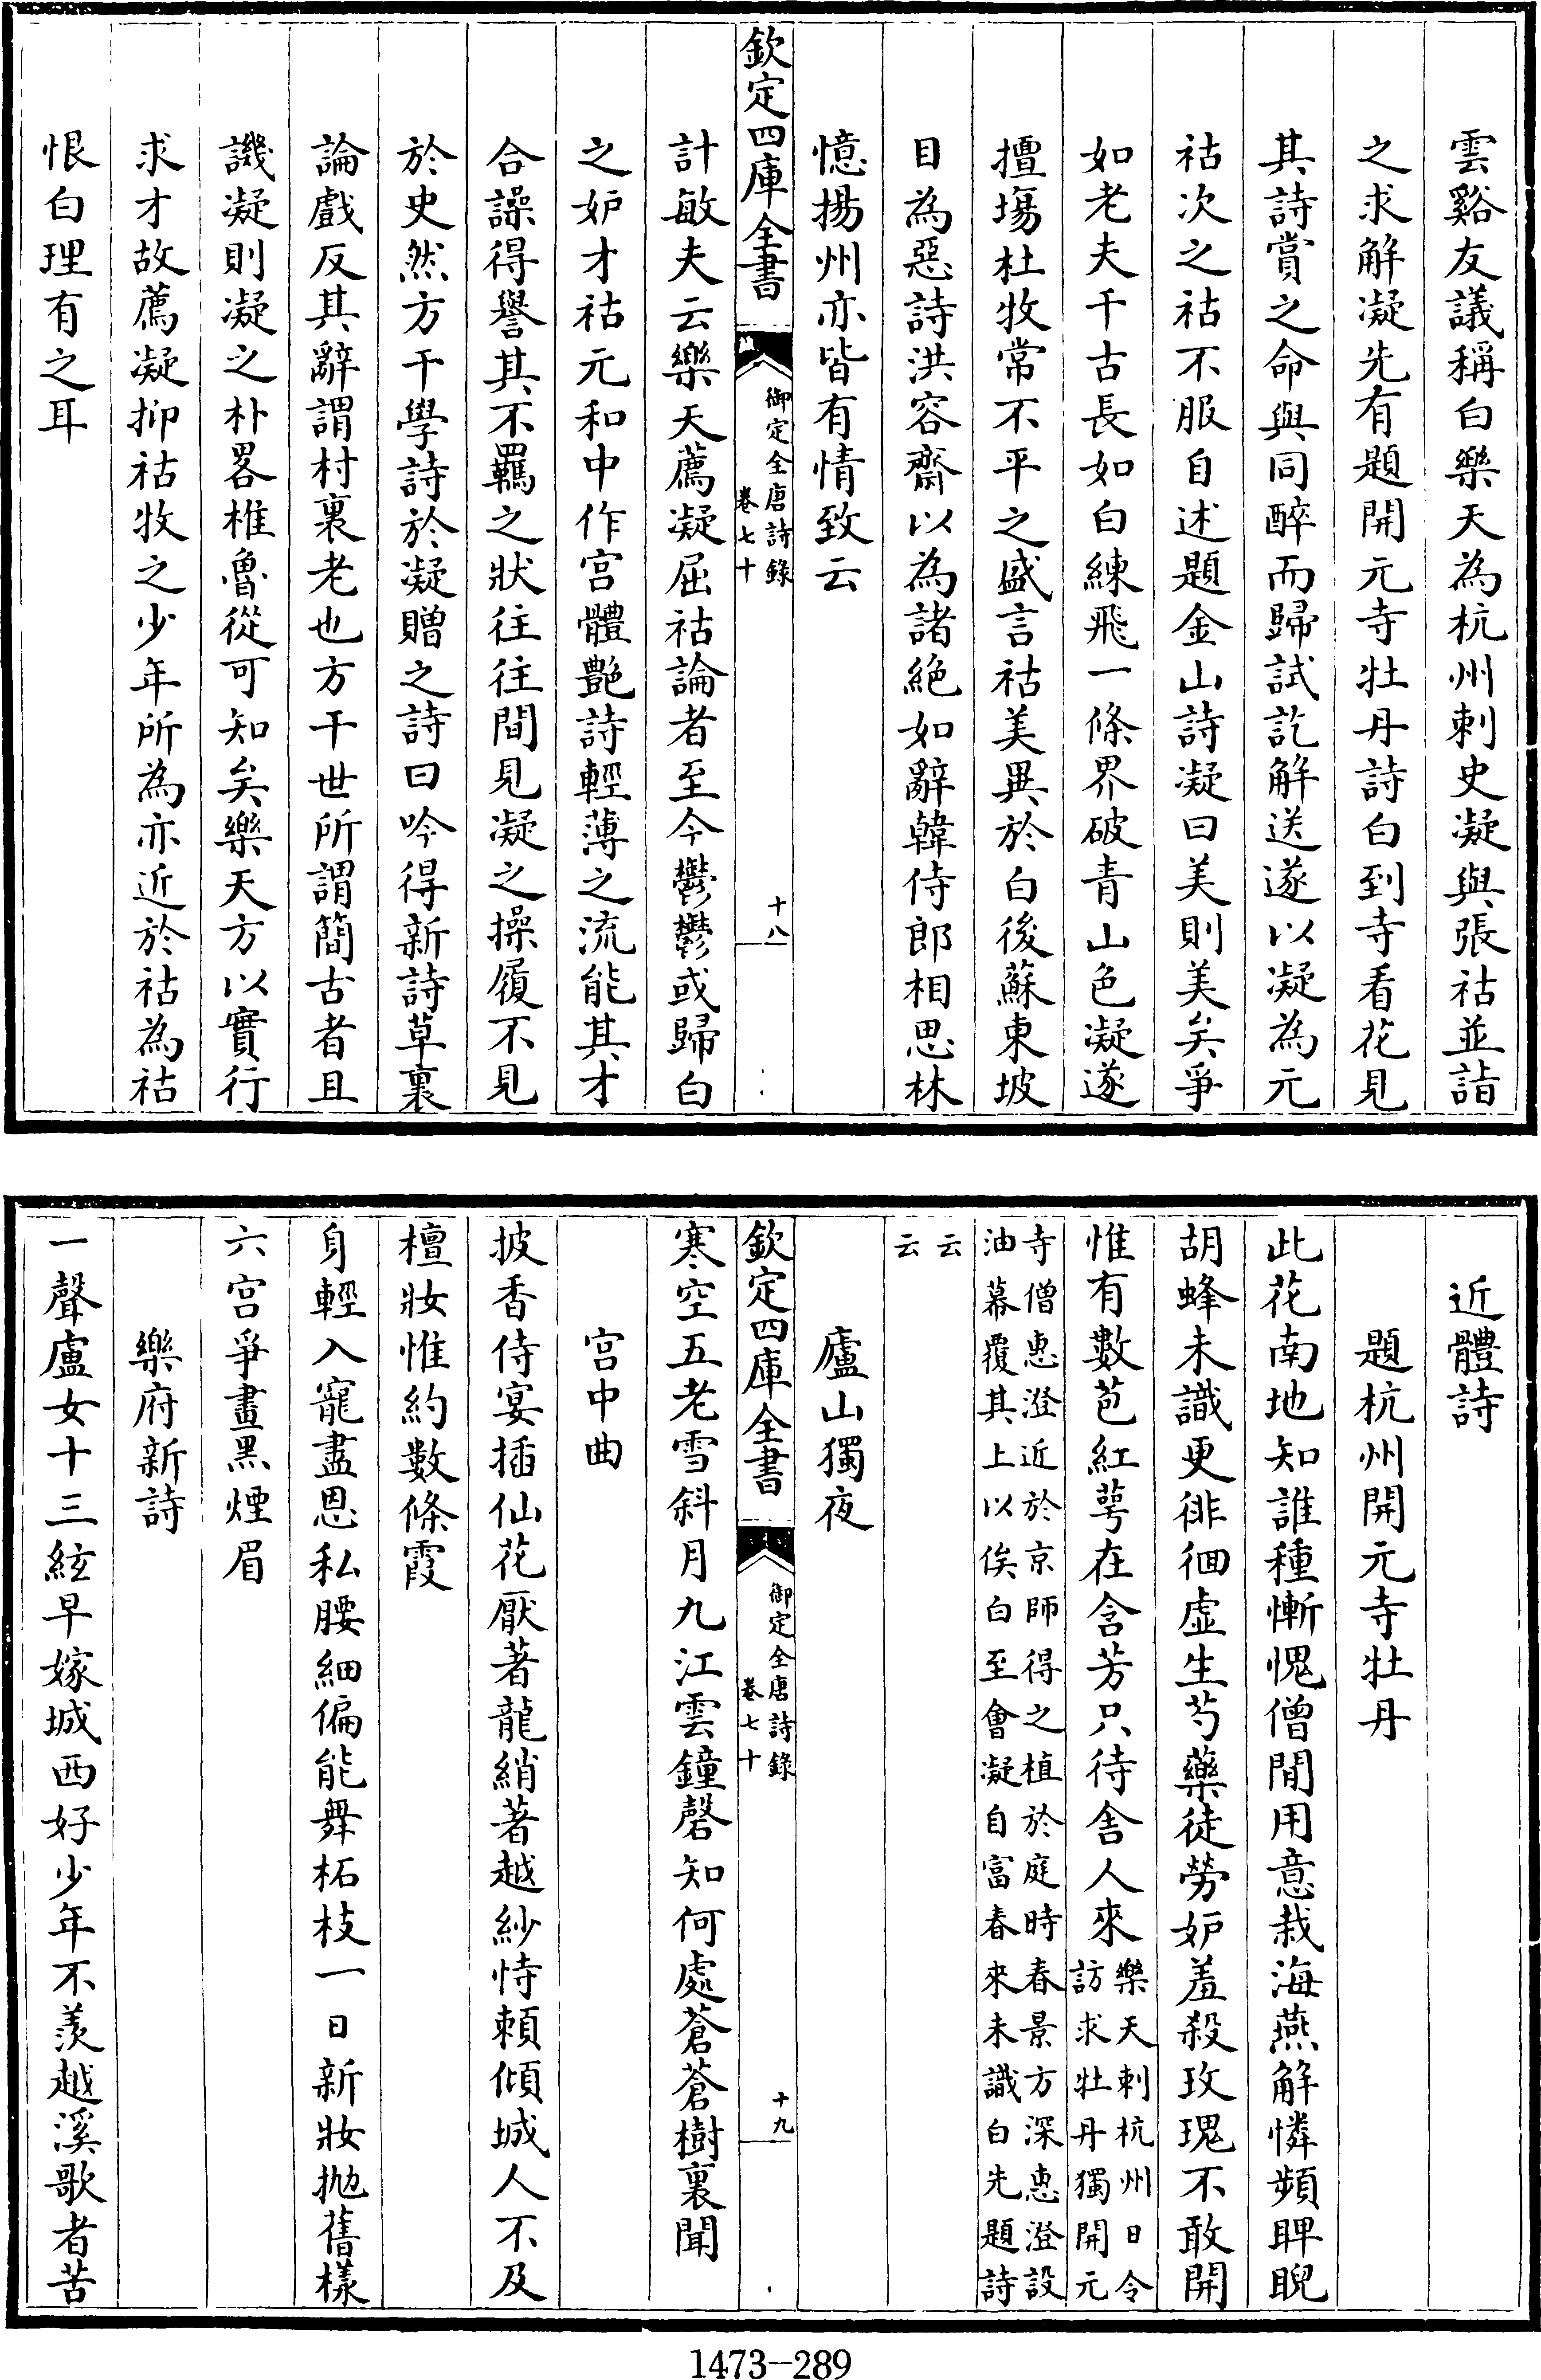 雲谿友議稱白樂天為杭州刺史凝與張祜並詣
之求解凝先有題開元寺牡丹詩白到寺看花見
其詩賞之命與同醉而歸試訖解送遂以凝為元
祜次之祜不服自述題金山詩凝曰美則美矣爭
如老夫千古長如白練飛一條界破青山色凝遂
擅塲杜牧常不平之盛言祜美異於白後蘇東坡
目為惡詩洪容齋以為諸絶如辭韓侍郎相思林
憶揚州亦皆有情致云
欽定四庫全書
御定全唐詩錄
卷七十
十八
計敏夫云樂天薦凝屈祜論者至今鬱鬱或歸白
之妒才祜元和中作宮體艶詩輕薄之流能其才
合譟得譽其不羈之狀往往間見凝之操履不見
於史然方干學詩於凝贈之詩曰吟得新詩草裏
論戲反其辭謂村裏老也方干世所謂簡古者且
譏凝則凝之朴畧椎魯從可知矣樂天方以實行
求才故薦凝抑祜牧之少年所為亦近於祜為祜
恨白理有之耳
近體詩
題杭州開元寺牡丹
此花南地知誰種慚愧僧閒用意栽海燕解憐頻睥睨
胡蜂未識更徘徊虛生芍藥徒勞妒羞殺玫瑰不敢開
惟有數苞紅萼在含芳只待舍人來樂天刺杭州日令
訪求牡丹獨開元
寺僧惠澄近於京師得之植於庭時春景方深惠澄設
油幕覆其上以俟白至會凝自富春來未識白先題詩
云
云
廬山獨夜
欽定四庫全書
御定全唐詩錄
卷七十
十九
寒空五老雪斜月九江雲鐘磬知何處蒼蒼樹裏聞
宮中曲
披香侍宴插仙花厭著龍綃著越紗恃賴傾城人不及
檀妝惟約數條霞
身輕入寵盡恩私腰細偏能舞柘枝一日新妝拋舊樣
六宮爭畫黑煙眉
樂府新詩
一聲盧女十三絃早嫁城西好少年不羨越溪歌者苦
1473-289